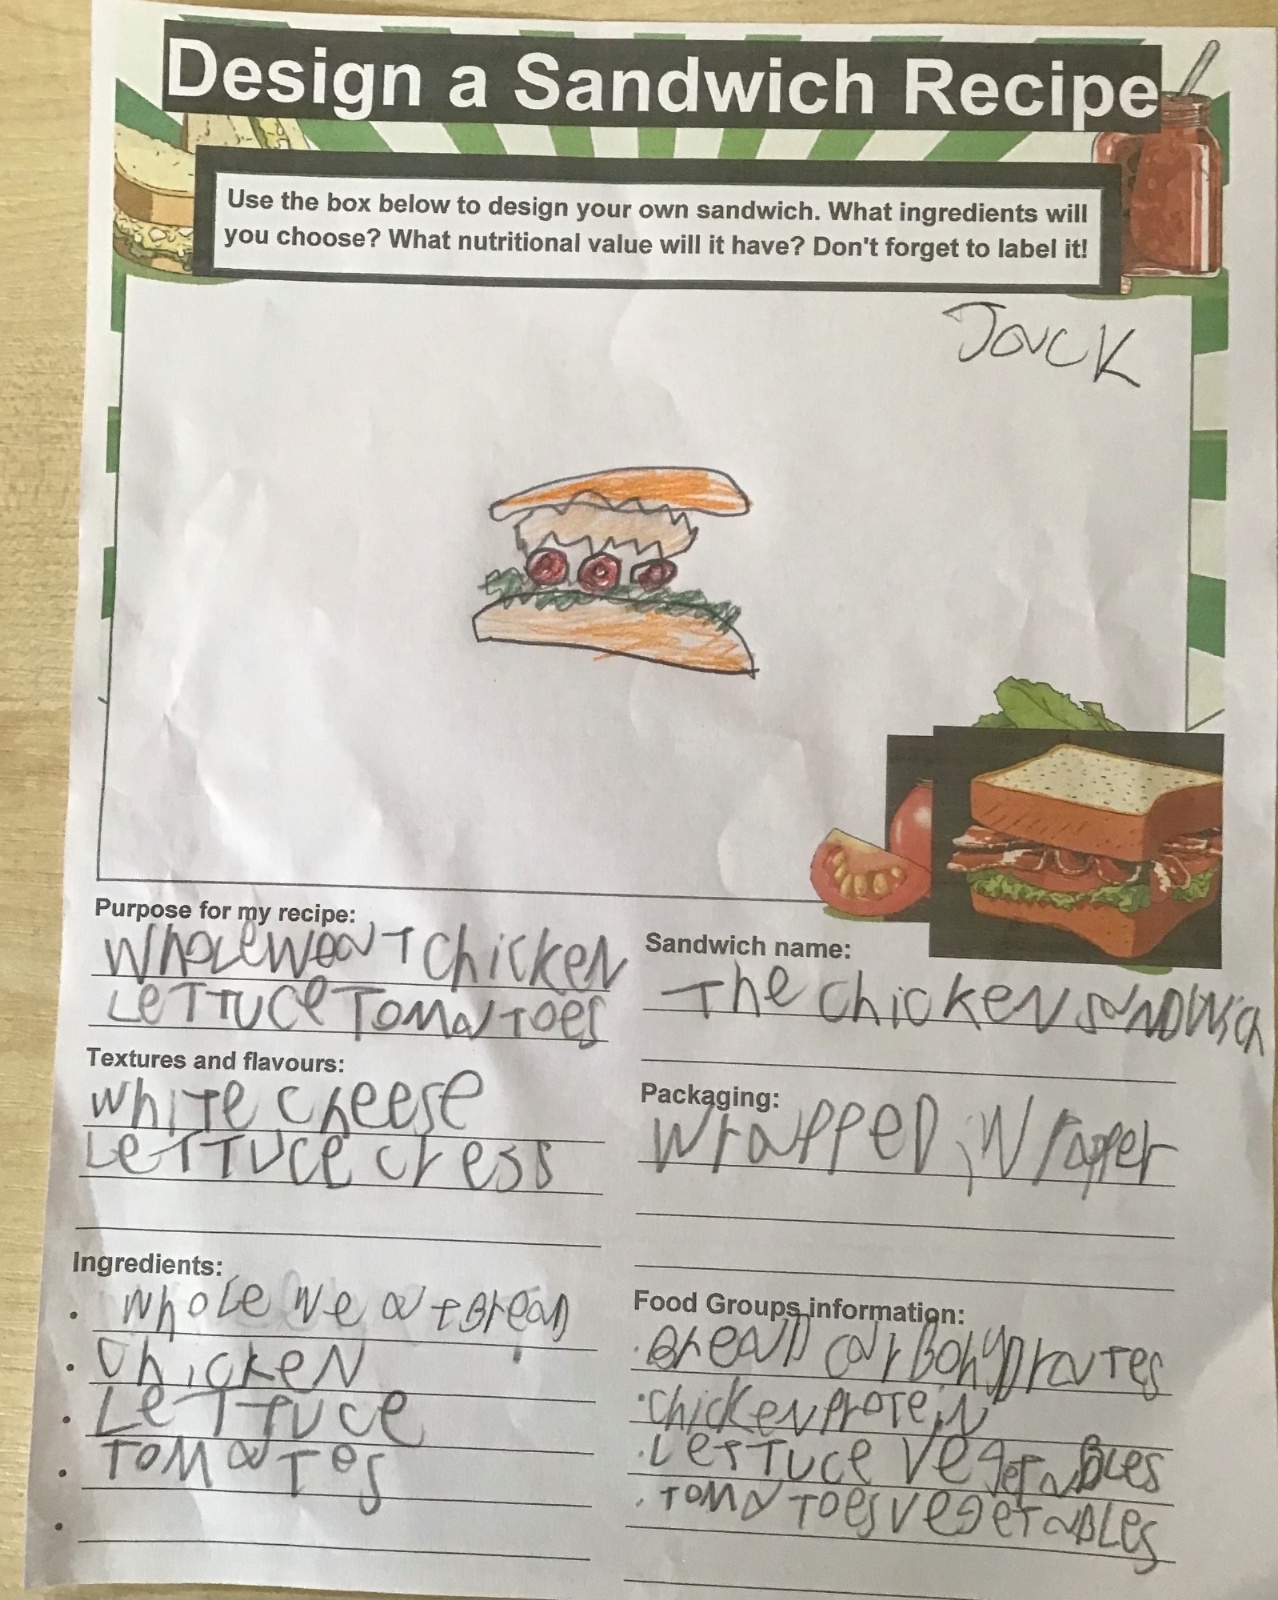 Design a Sandwich Recipe
Use the box below to design your own sandwich. What ingredients will
you choose? What nutritional value will it have? Don't forget to label it!
Jack
Purpose for my recipe:
Wholeweat chicken
Lettuce Tomatoes
Textures and flavours:
white cheese
Lettuce cress
Ingredients:
• whole weat Bread
• Chicken
• Lettuce
• Tomatos
•
Sandwich name:
The chicken sandwich
Packaging:
wrapped in wrapper
Food Groups information:
• Bread carbohydrates
• chicken protein
• Lettuce vegetables
• Tomatoes vegetables